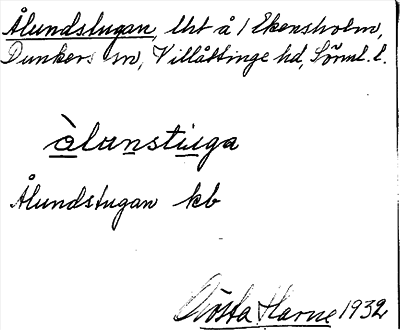 Ålundstugan, lht å / Ekensholm,
Dunkers sn, Villåttinge hd, Sörml. l.
àlunstiuga
Ålundstugan kb
Gösta Harne 1932